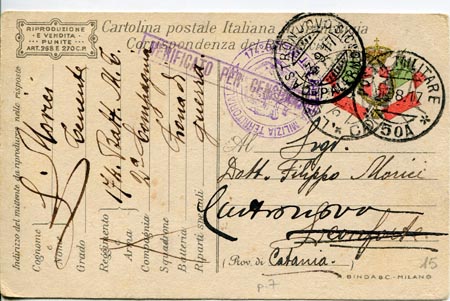 RIPRODUZIONE
E VENDITA
PUNITE
ART. 268 E 270 C.P.
Cartolina postale Italiana
Corrispondenza del
VERIFICATO PER CENSURA
MILIZIA TERRITORIALE
POSTA MILITARE
Indirizzo del mittente da riprodurre nelle risposte
Cognome
Nome
Grado
Reggimento
Arma
Compagnia
Squadrone
Batteria
Riparti speciali
S. Morici
Tenente
174 Batt. M.T.
2a Compagnia
Zona di
guerra
Al Sig.
Dott. Filippo Morici
Leonforte
(Prov. di Catania.)
15
BINDA & C. - MILANO
p. 7